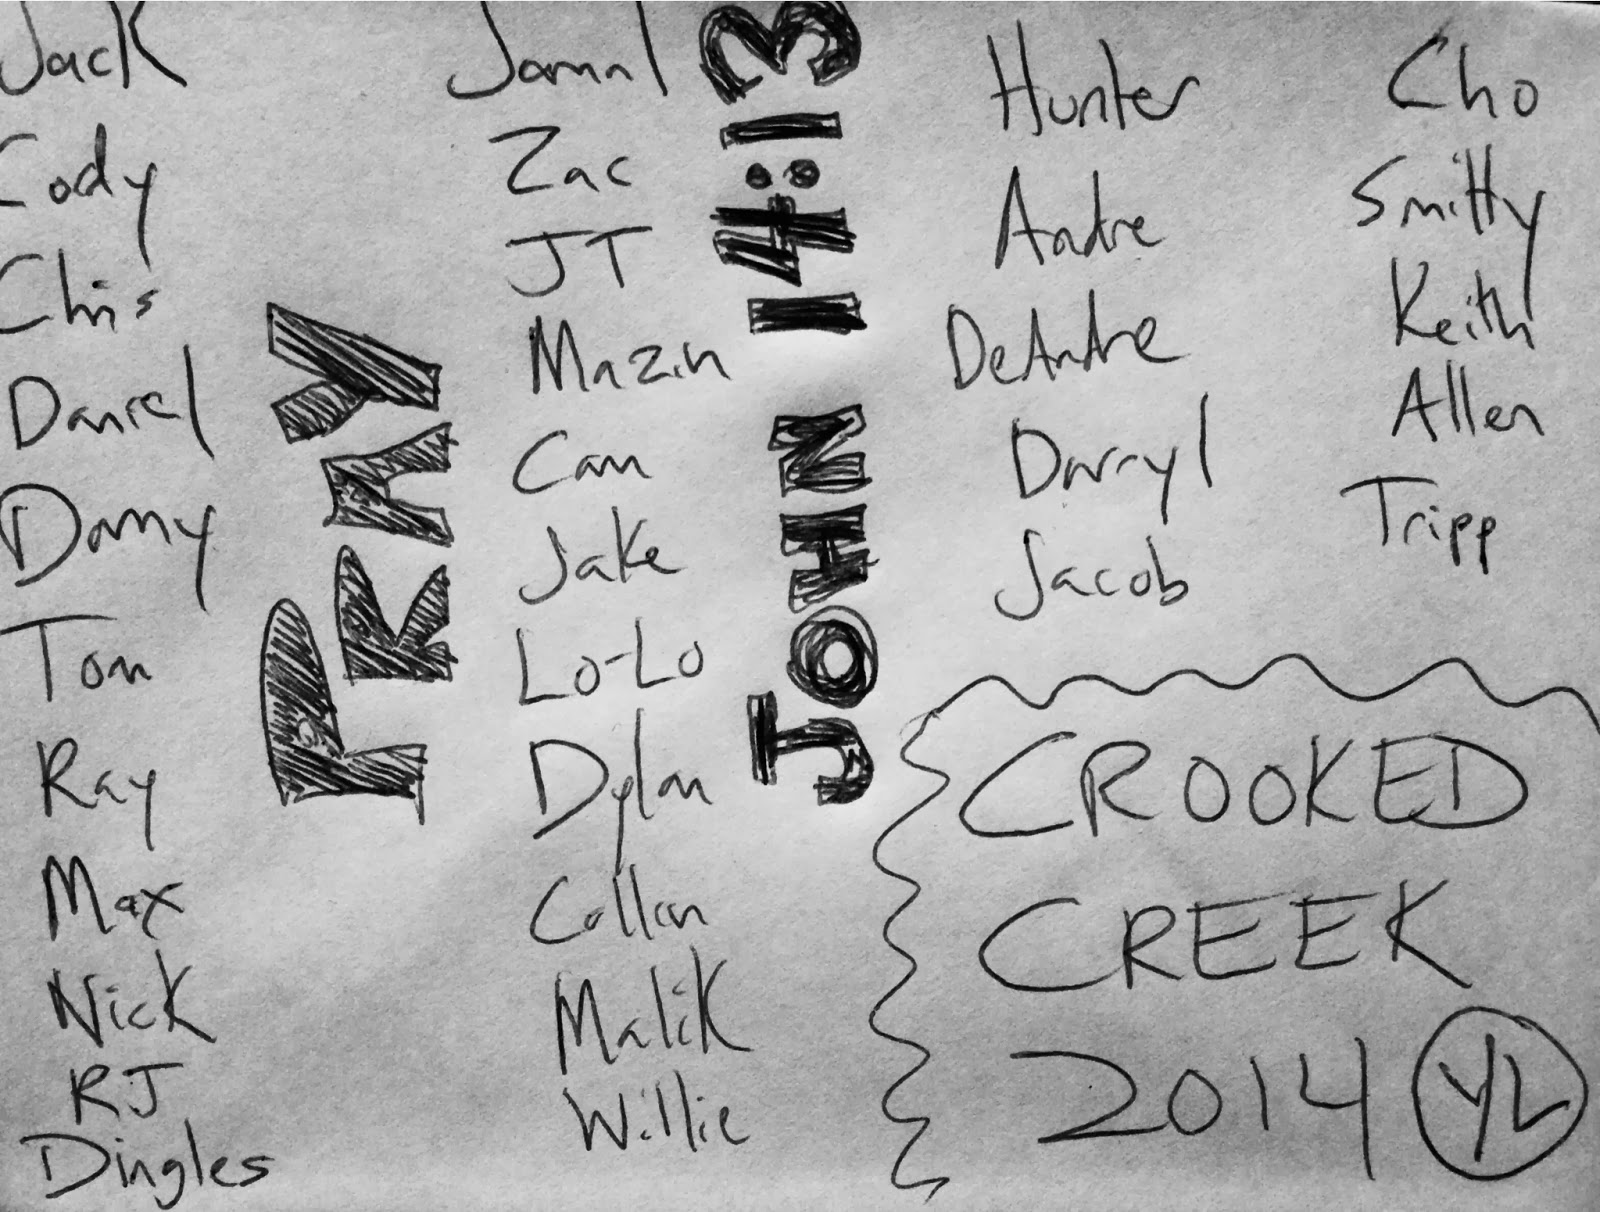 Jack
Cody
Chris
Daniel
Danny
Tom
Ray
Max
Nick
RJ
Dingles
PRAY
Jamal
Zac
JT
Mazin
Cam
Jake
Lo-Lo
Dylan
Collin
Malik
Willie
JOHN 14:13
Hunter
Andre
DeAndre
Darryl
Jacob
Cho
Smitty
Keith
Allen
Tripp
CROOKED
CREEK
2014 YL